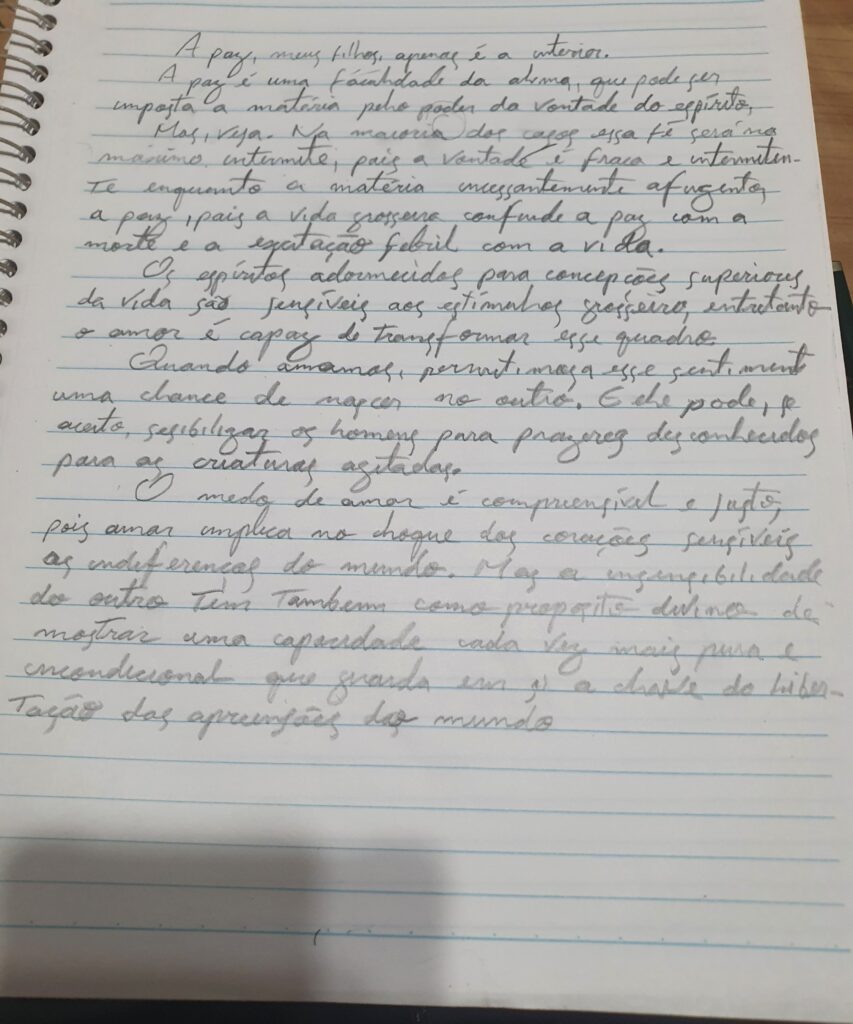 A paz, meus filhos, apenas é a interior.
A paz é uma faculdade da alma, que pode ser
imposta a matéria pelo poder da vontade do espírito,
Mas, veja. Na maioria dos casos essa fé será no
máximo intermite, pois a vontade é fraca e intermiten-
te enquanto a matéria incessantemente afugenta,
a paz, pois a vida grosseira confunde a paz com a
morte e a excitação febril com a vida.
Os espíritos adormecidos para concepções superiores
da vida são sensíveis aos estímulos grosseiro, entretanto
o amor é capaz de transformar esse quadro.
Quando amamos, permitimos a esse sentimento
uma chance de nascer no outro. E ele pode, se
aceito, sesibilizar os homens para prazeres desconhecidos
para as criaturas agitadas.
O medo de amar é compreensível e justo,
pois amar implica no choque dos corações sensíveis
as indiferenças do mundo. Mas a insensibilidade
do outro tem também como proposito divino de
mostrar uma capacidade cada vez mais pura e
incondicional que guarda em si a chave do liber-
tação das apreensões do mundo